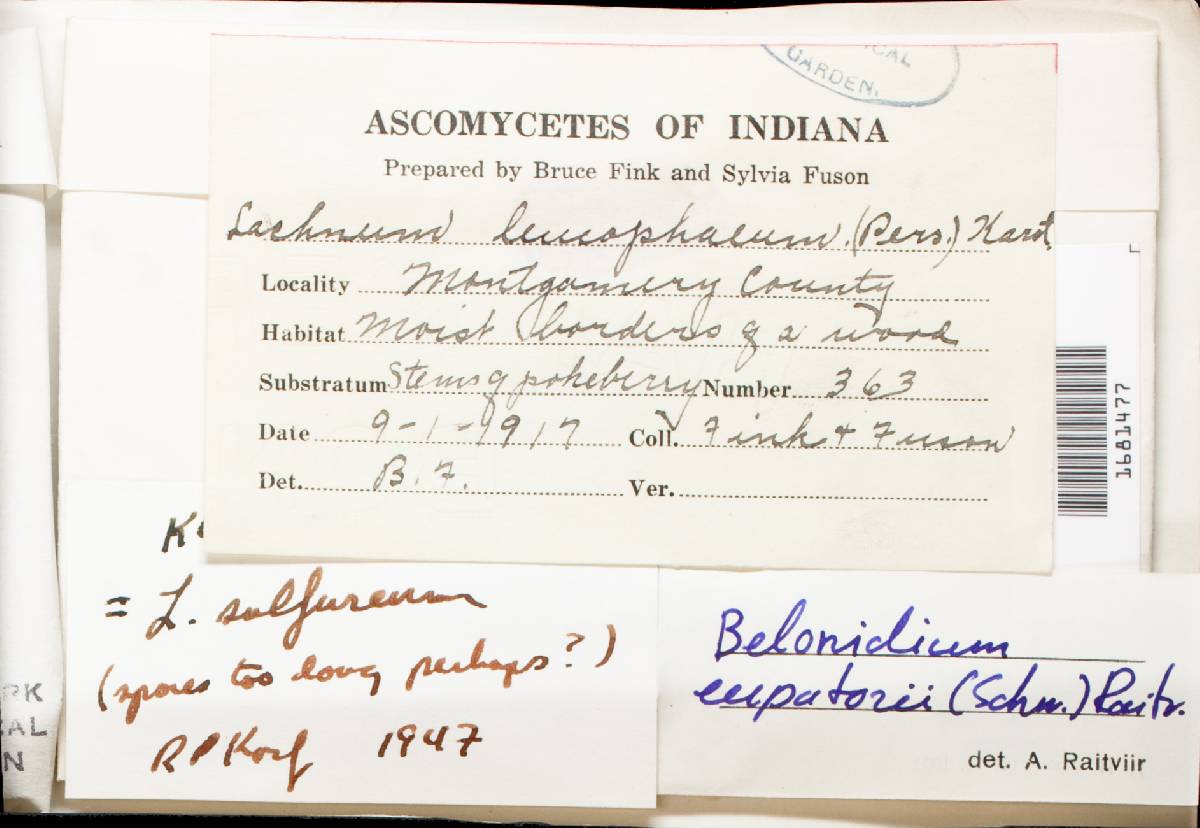 GARDEN.
ASCOMYCETES OF INDIANA
Prepared by Bruce Fink and Sylvia Fuson
Lachnum leucophaeum (Pers.) Karst.
Locality Montgomery County
Habitat Moist borders of a wood
Substratum Stems of pokeberry Number 363
Date 9-1-1917 Coll. Fink & Fuson
Det. B. F. Ver.
1681477
= L. sulfureum
(spores too long perhaps?)
RP Korf 1947
Belonidium
eupatorii (Schw.) Raitv.
det. A. Raitviir